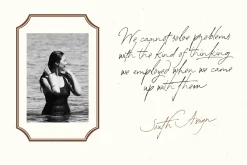 We cannot solve problems
with the kind of thinking
we employed when we came
up with them